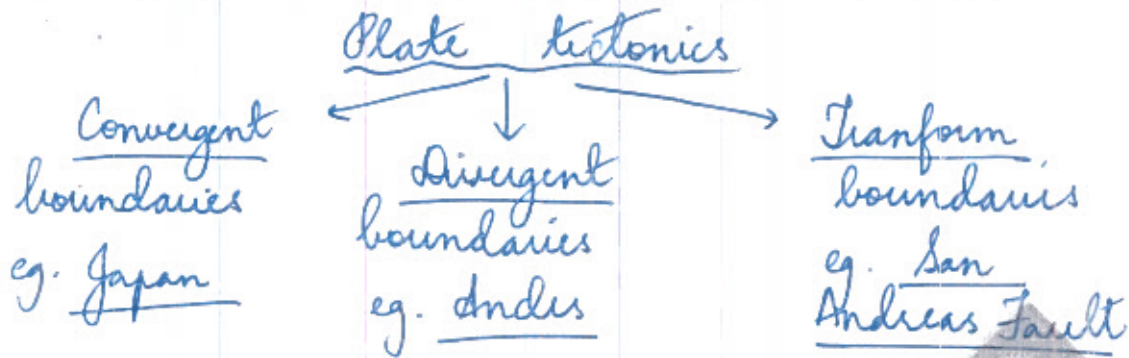 Plate tectonics
Convergent
boundaries
eg. Japan
Divergent
boundaries
eg. Andes
Tranform
boundaries
eg. San
Andreas Fault